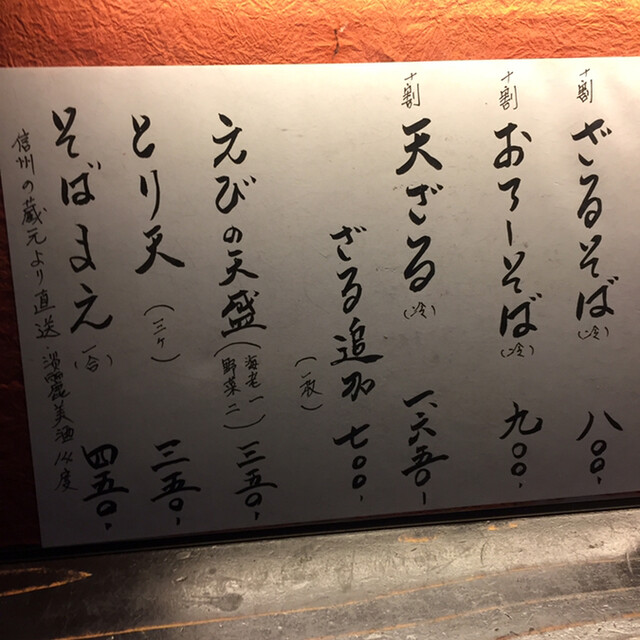 十割 ざるそば(冷) 八〇〇、
十割 おろしそば(冷) 九〇〇、
十割 天ざる(冷) 一、六五〇ー
ざる追加(一枚) 七〇〇、
えびの天盛(海老一 野菜二) 三五〇、
とり天(三ケ) 三五〇、
そばまえ(一合) 四五〇、
信州の蔵元より直送 美酒 14度